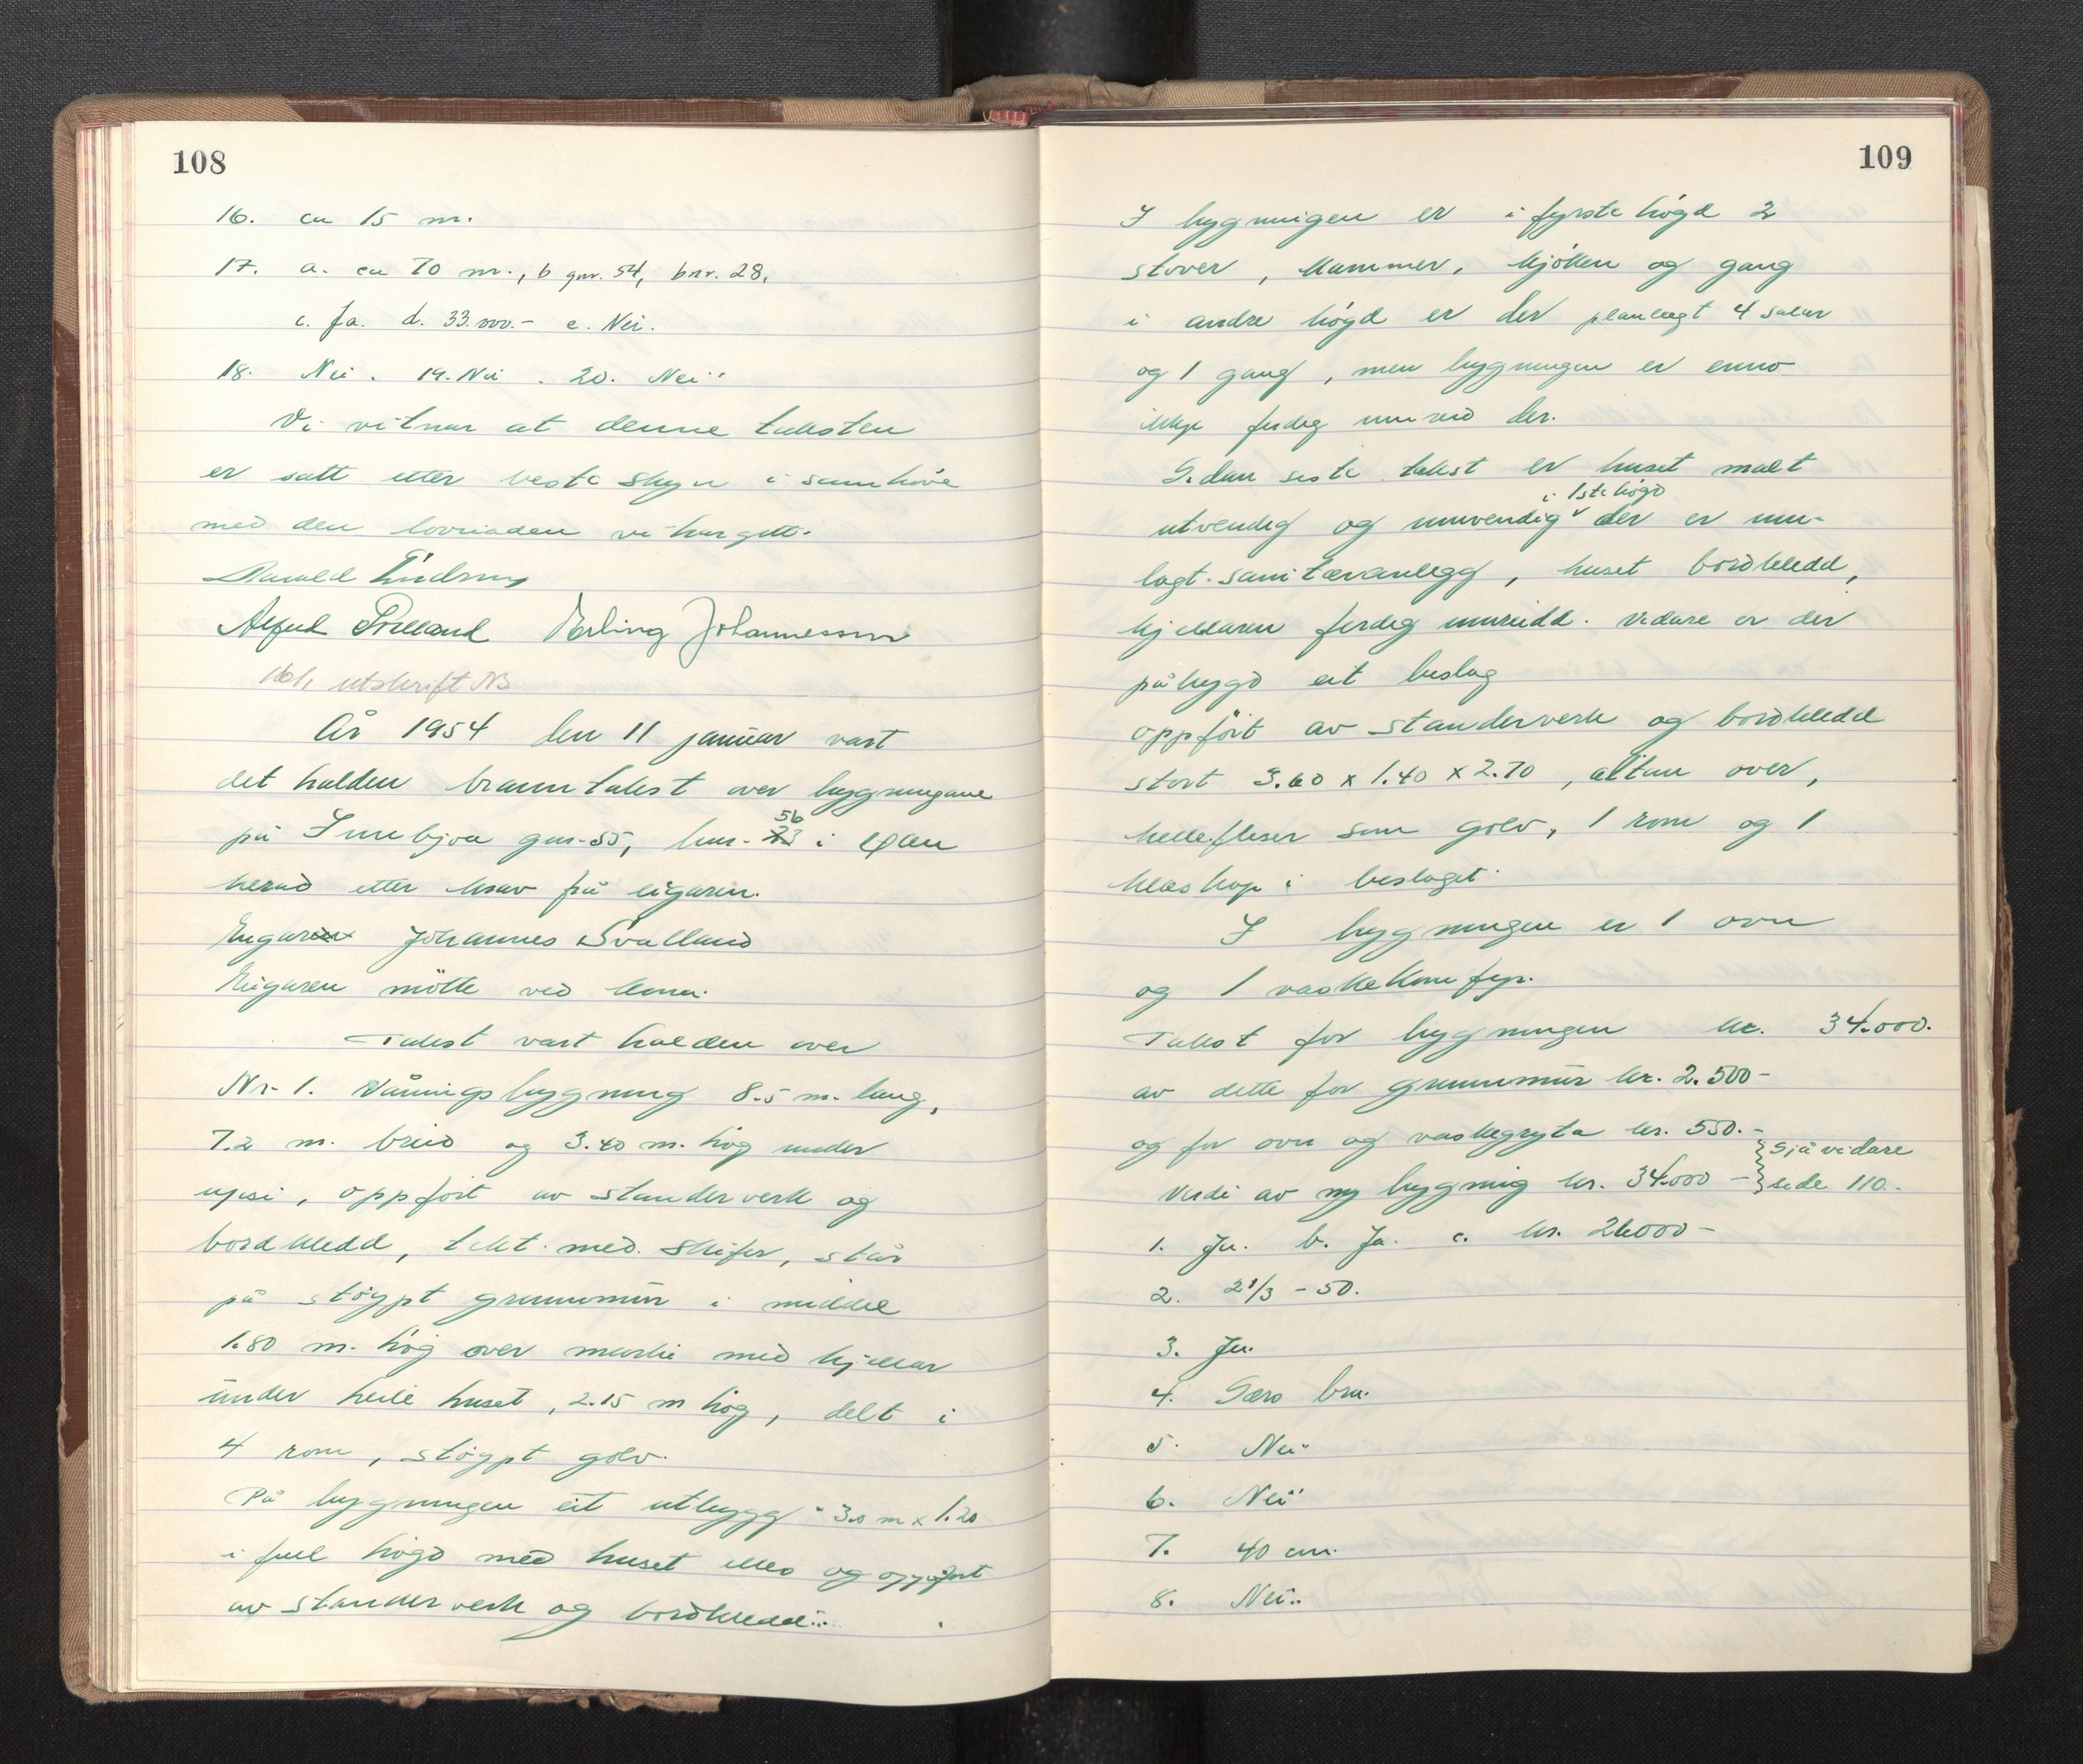 108
16. ca 15 m.
17. a. ca 70 m., b gnr. 54, bnr. 28,
c. Ja. d. 33.000.- e. Nei.
18. Nei. 19. Nei. 20. Nei
Vi vitnar at denne taksten
er satt etter beste skyn i samhøve
med den lovnaden vi har gitt.
Erling Johannessen
utskrift
År 1954 den 11 januar vart
det halden branntakst over bygningane
på gnr. 55, bnr. 23 56 i
herad etter krav frå eigaren.
Eigaren Johannes Svalland
Eigaren møtte ved
Takst vart halden over
Nr. 1. Våningsbygning 8.5 m. lang,
7.2 m. breid og 3.40 m. høg under
upsi, oppført av standerverk og
bordkledd, tekt med skifer, står
på støypt grunnmur i middel
1.80 m. høg over marki med kjellar
under heile huset, 2.15 m høg, delt i
4 rom, støypt golv.
På bygningen eit utbygg 3.0 m x 1.20
i full høgd med huset elles og oppført
av standerverk og bordkledd.
109
I bygningen er i fyrste høgd 2
stover, kammer, kjøken og gang
i andre høgd er der planlagt 4 salar
og 1 gang, men bygningen er enno
ikkje ferdig innreid der.
Sidan siste takst er huset malt
i 1ste høgd
utvendig og innvendig der er inn-
lagt sanitæranlegg, huset bordkledd,
kjellaren ferdig innreidd. Vidare er der
påbygd eit beslag
oppført av standerverk og bordkledd
stort 3.60 x 1.40 x 2.70, altan over,
hellefliser som golv, 1 rom og 1
kleskap i beslaget.
I bygningen er 1 ovn
og 1 vaskekomfyr.
Takst for bygningen kr. 34.000.
av dette for grunnmur kr. 2.500-
og for ovn og vaskegryta kr. 550.-
Verdi av ny bygning kr. 34.000 - } Sjå vidare
side 110.
1. Ja. b. Ja. c. kr. 26000-
2. 2 1/3 - 50.
3. Ja.
4. Sers bra.
5. Nei
6. Nei
7. 40 cm.
8. Nei.